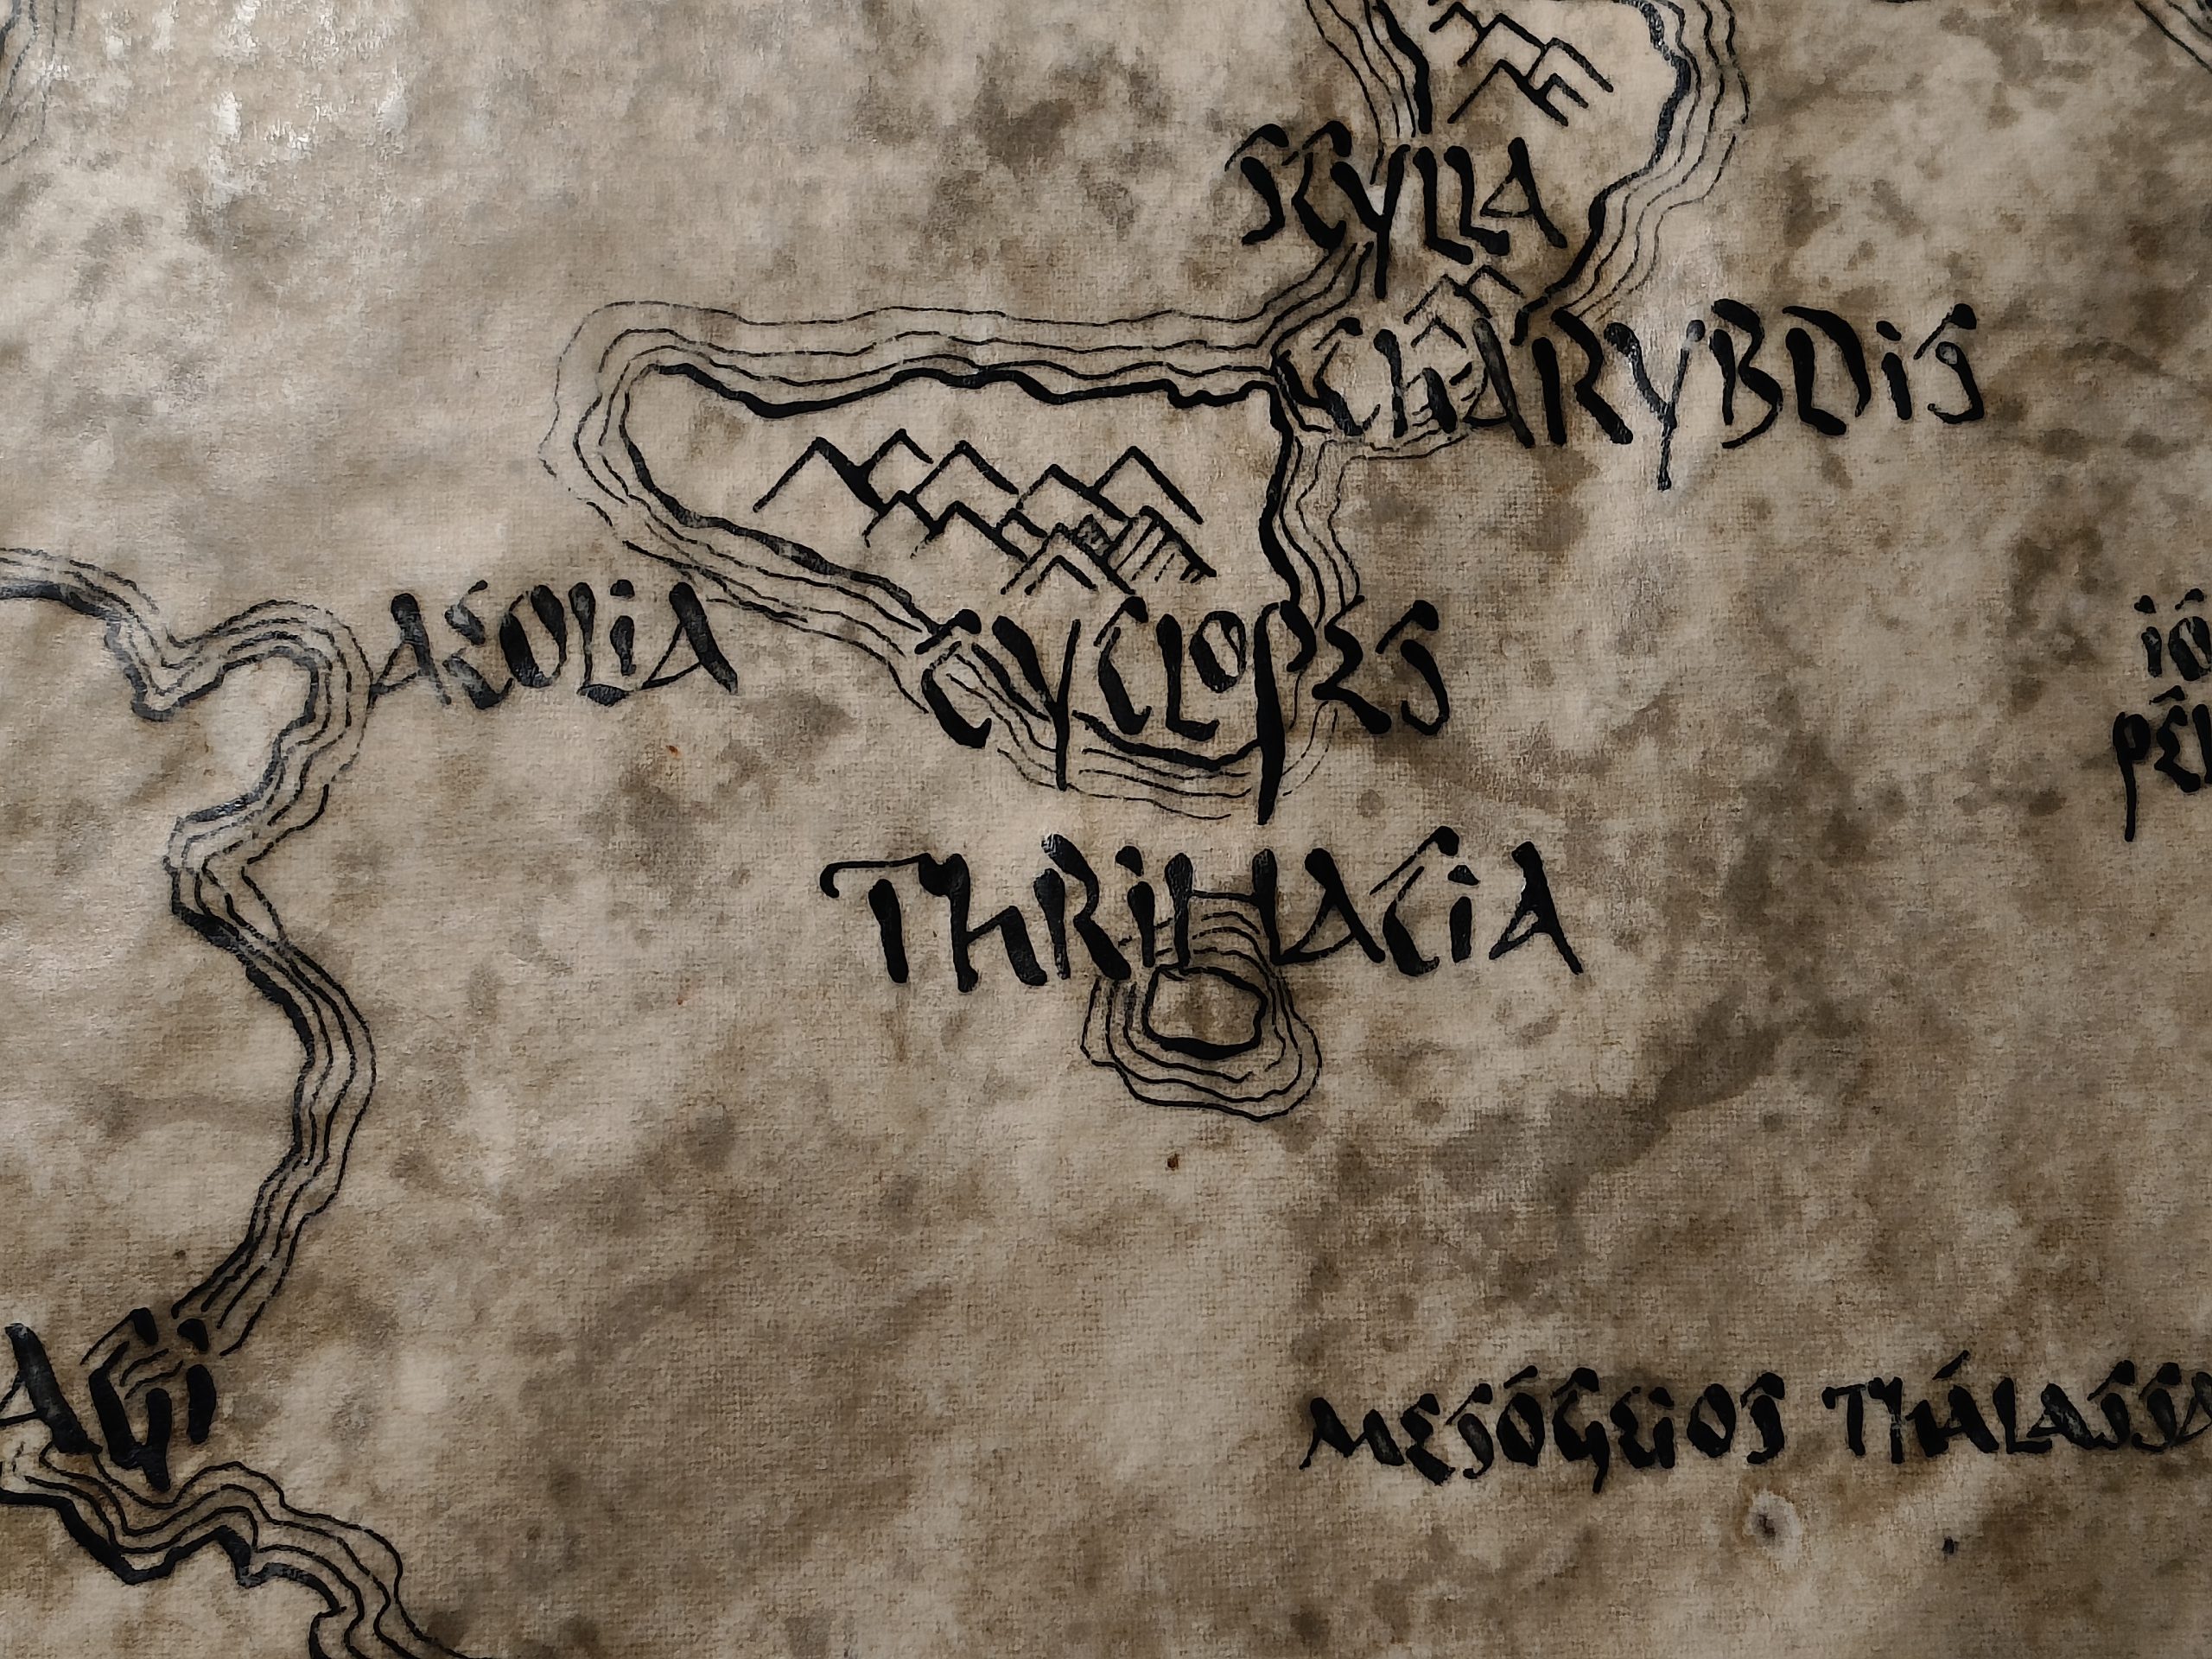 SCYLLA
CHARYBDIS
AEOLIA
CYCLOPES
THRINACIA
MESÓGEIOS THÁLASSA